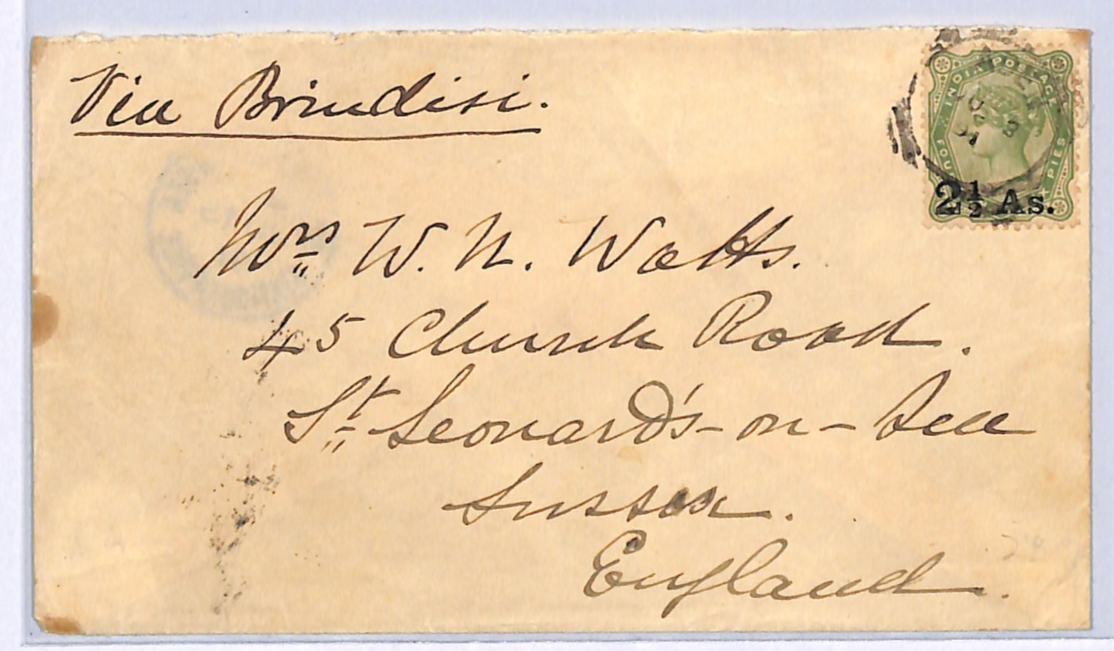 Via Brindisi.
INDIA POSTAGE
PIES
2½ As.
Mrs W. N. Watts.
45 Church Road.
St Leonard's-on-Sea
Sussex.
England.